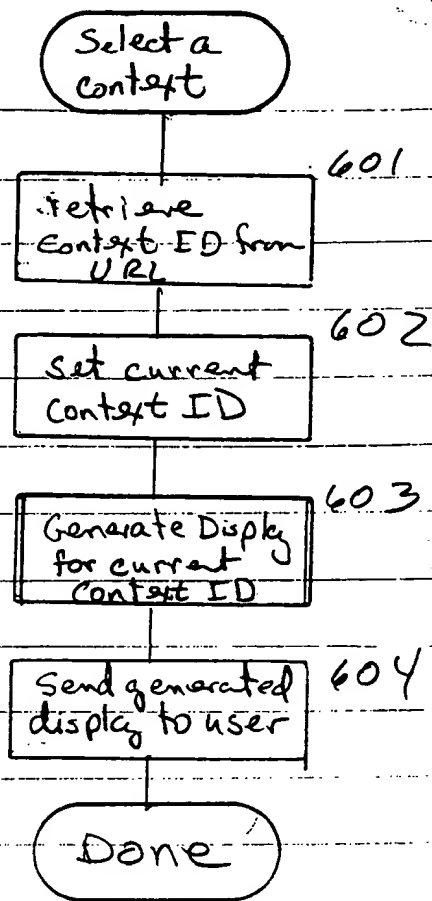 Select a
context
601
retrieve
Context ID from
URL
602
Set current
Context ID
603
Generate Display
for current
Context ID
604
Send generated
display to user
Done